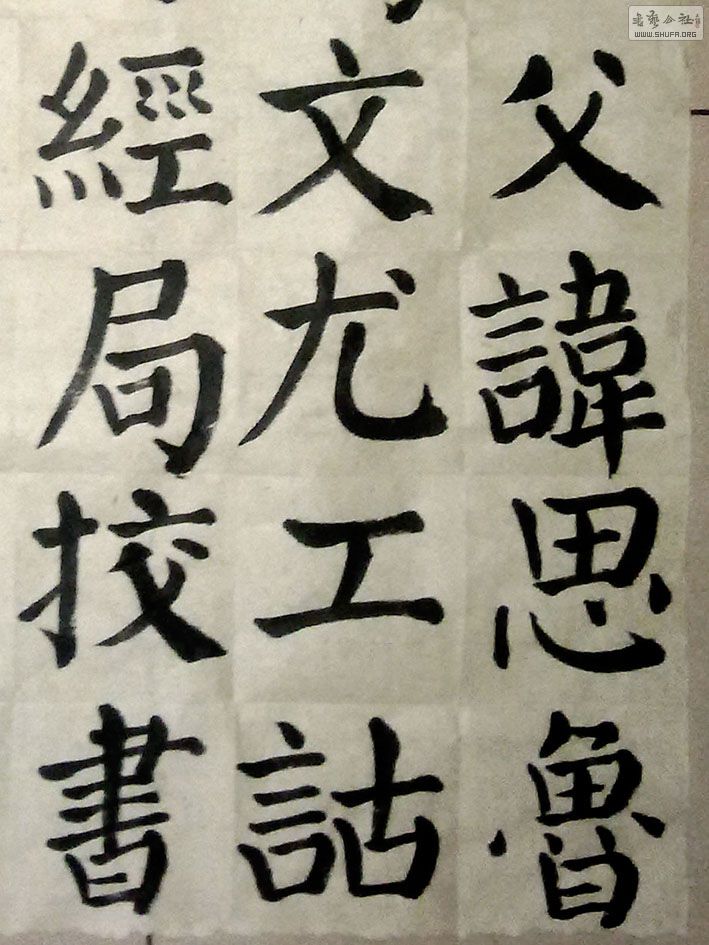 父諱思魯
文尤工詁
經局挍書
書藝公社
WWW.SHUFA.ORG